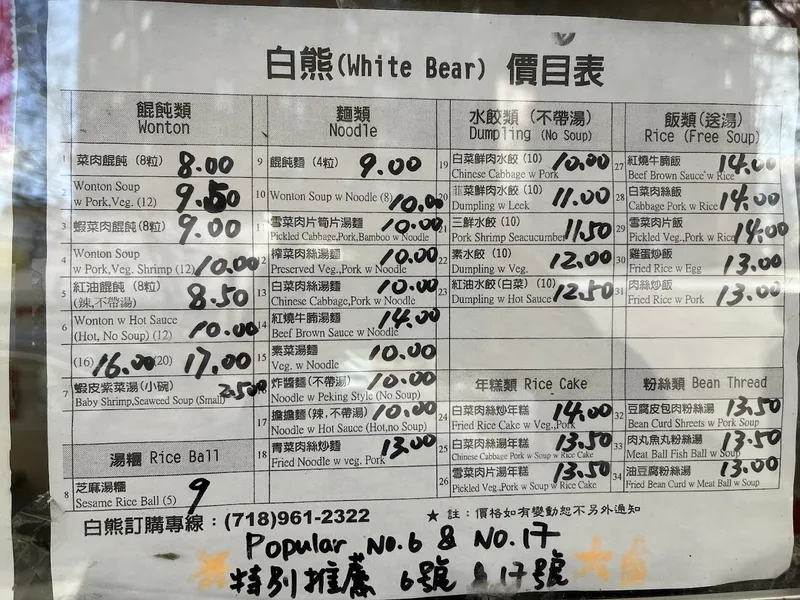 白熊(White Bear) 價目表
餛飩類
Wonton
1 菜肉餛飩 (8粒) 8.00
2 Wonton Soup
w Pork,Veg. (12) 9.50
3 蝦菜肉餛飩 (8粒) 9.00
4 Wonton Soup
w Pork,Veg. Shrimp (12) 10.00
5 紅油餛飩 (8粒)
(辣,不帶湯) 8.50
6 Wonton w Hot Sauce
(Hot, No Soup) (12) 10.00
(16) 16.00 (20) 17.00
7 蝦皮紫菜湯(小碗)
Baby Shrimp,Seaweed Soup (Small) 2.50
湯糰 Rice Ball
8 芝麻湯糰
Sesame Rice Ball (5) 9
麵類
Noodle
9 餛飩麵 (4粒) 9.00
10 Wonton Soup w Noodle (8) 10.00
11 雪菜肉片筍片湯麵 10.00
Pickled Cabbage,Pork,Bamboo w Noodle
12 榨菜肉絲湯麵 10.00
Preserved Veg.,Pork w Noodle
13 白菜肉絲湯麵 10.00
Chinese Cabbage,Pork w Noodle
14 紅燒牛腩湯麵 14.00
Beef Brown Sauce w Noodle
15 素菜湯麵 10.00
Veg. w Noodle
16 炸醬麵 (不帶湯) 10.00
Noodle w Peking Style (No Soup)
17 擔擔麵 (辣,不帶湯) 10.00
Noodle w Hot Sauce (Hot,no Soup)
18 青菜肉絲炒麵 13.00
Fried Noodle w veg. Pork
水餃類 (不帶湯)
Dumpling (No Soup)
19 白菜鮮肉水餃 (10) 10.00
Chinese Cabbage w Pork
20 韮菜鮮肉水餃 (10) 11.00
Dumpling w Leek
21 三鮮水餃 (10) 11.50
Pork Shrimp Seacucumber
22 素水餃 (10) 12.00
Dumpling w Veg.
23 紅油水餃 (白菜) (10) 12.50
Dumpling w Hot Sauce
年糕類 Rice Cake
24 白菜肉絲炒年糕 14.00
Fried Rice Cake w Veg., Pork
25 白菜肉絲湯年糕 13.50
Chinese Cabbage Pork w Soup w Rice Cake
26 雪菜肉片湯年糕 13.50
Pickled Veg.,Pork w Soup w Rice Cake
飯類(送湯)
Rice (Free Soup)
27 紅燒牛腩飯 14.00
Beef Brown Sauce w Rice
28 白菜肉絲飯 14.00
Cabbage Pork w Rice
29 雪菜肉片飯 14.00
Pickled Veg.,Pork w Rice
30 雞蛋炒飯 13.00
Fried Rice w Egg
31 肉絲炒飯 13.00
Fried Rice w Pork
粉絲類 Bean Thread
32 豆腐皮包肉粉絲湯 13.50
Bean Curd Shreets w Pork Soup
33 肉丸魚丸粉絲湯 13.50
Meat Ball Fish Ball w Soup
34 油豆腐粉絲湯 13.00
Fried Bean Curd w Meat Ball w Soup
白熊訂購專線：(718)961-2322
★ 註：價格如有變動恕不另外通知
Popular No.6 & NO.17
特別推薦 6號 & 17號